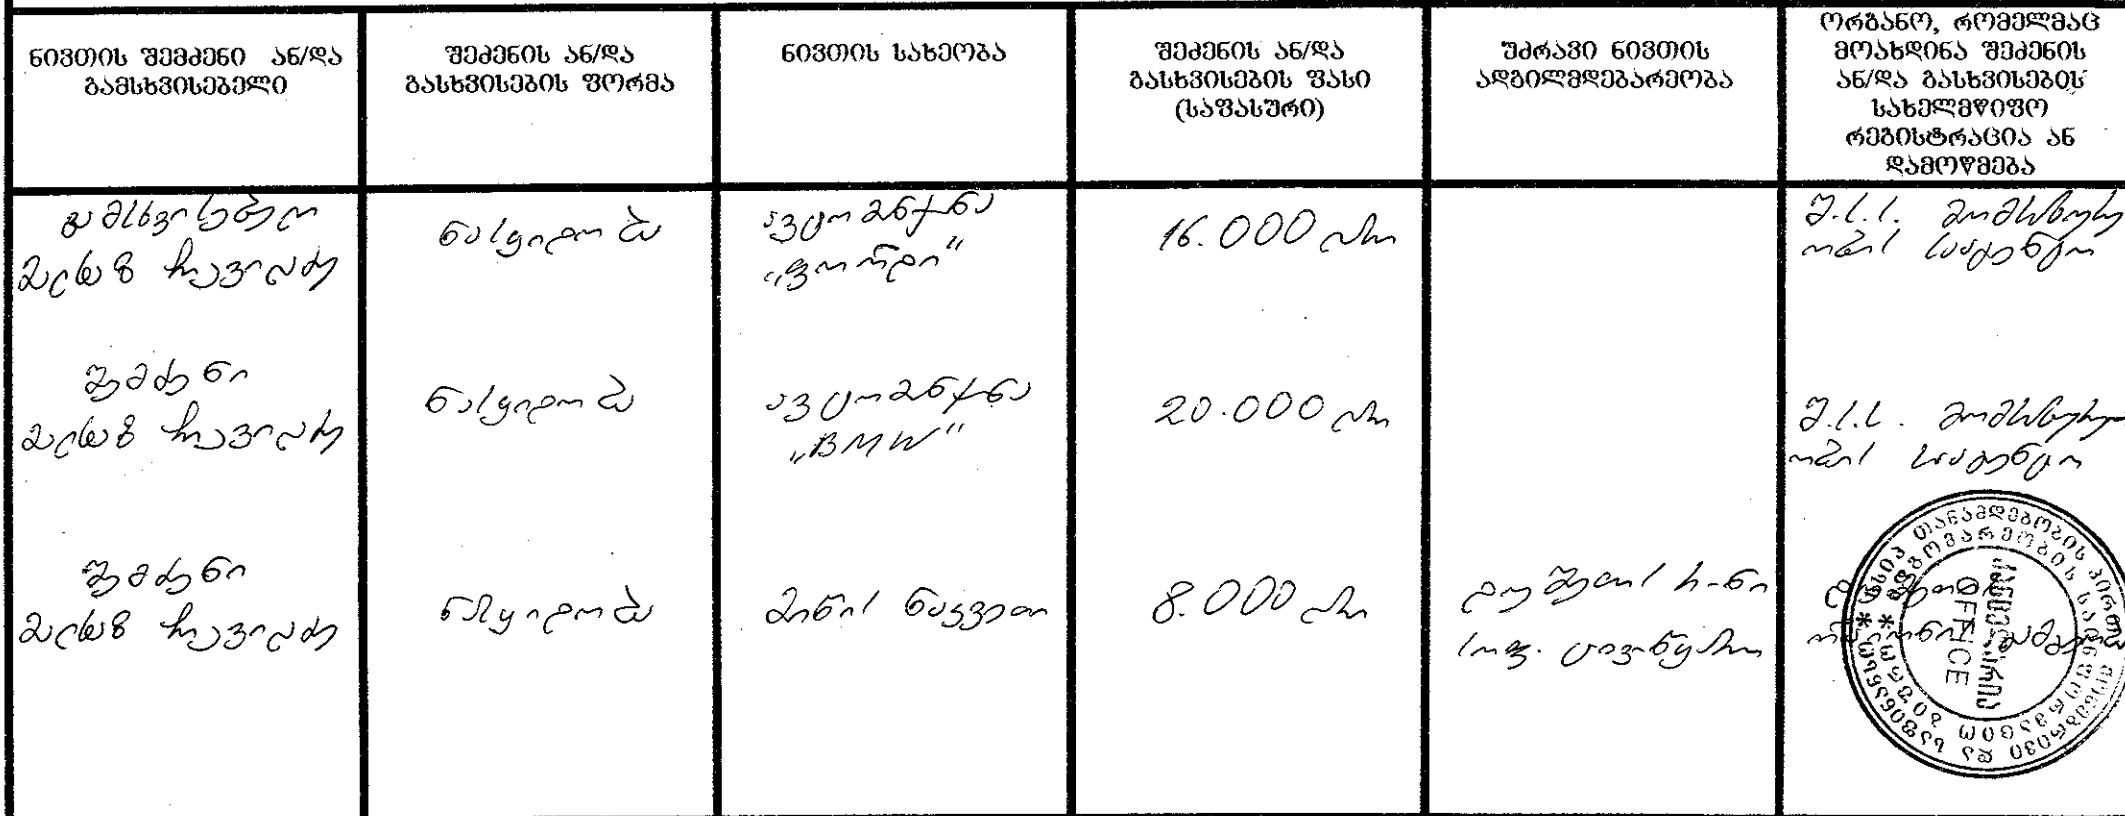 ნივთის შემძენი ან/და
გამსხვისებელი
შეძენის ან/და
გასხვისების ფორმა
ნივთის სახეობა
შეძენის ან/და
გასხვისების ფასი
(საფასური)
უძრავი ნივთის
ადგილმდებარეობა
ორგანო, რომელმაც
მოახდინა შეძენის
ან/და გასხვისების
სახელმწიფო
რეგისტრაცია ან
დამოწმება
გამსხვისებელი
მალხაზ
ნასყიდობა
ავტომანქანა
„ფორდი"
16.000 ლარი
შ.ს.ს. მომსახურე
ობის სააგენტო
შემძენი
მალხაზ
ნასყიდობა
ავტომანქანა
„BMW"
20.000 ლარი
შ.ს.ს. მომსახურე
ობის სააგენტო
შემძენი
მალხაზ
ნასყიდობა
მიწის ნაკვეთი
8.000 ლარი
დუშეთის რ-ნი
სოფ.
OFFICE